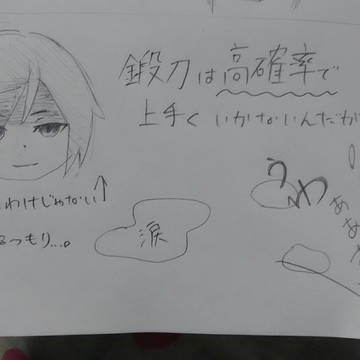 鍛刀は高確率で
上手く いかないんだが
わけじゃない↑
つもり...。
涙
うわ
ぁ
ぁ